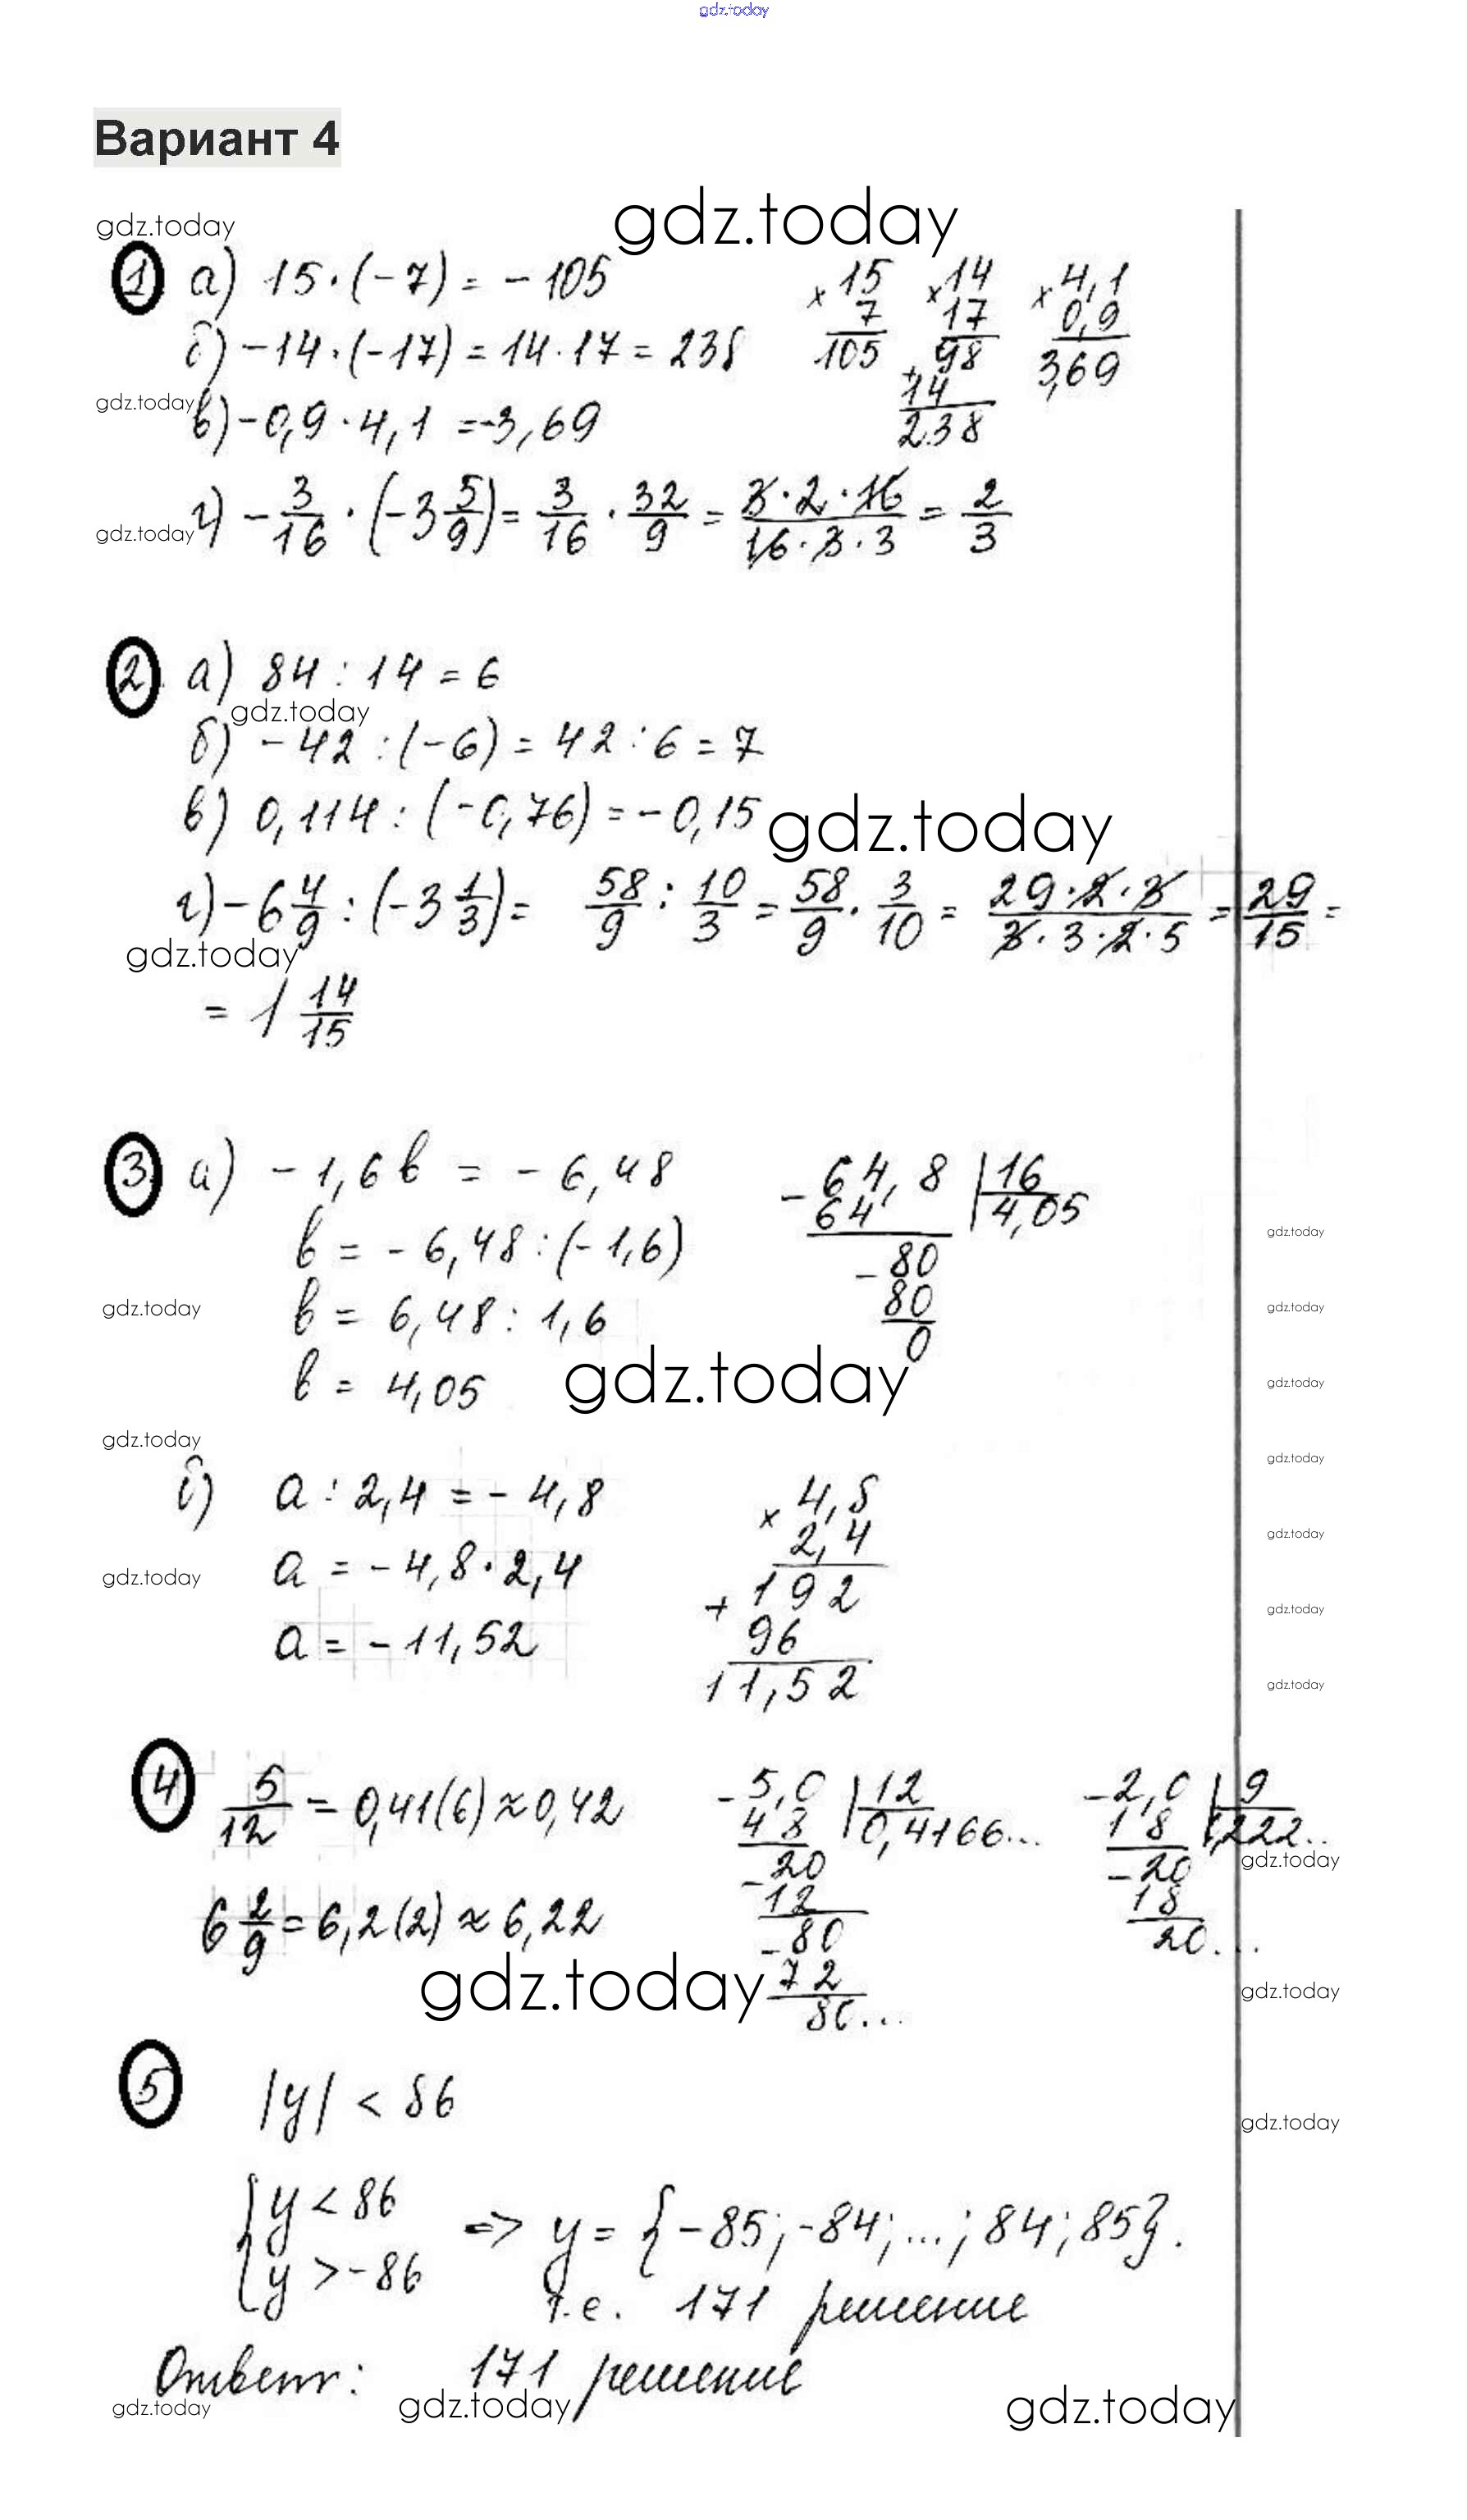 gdz.today
Вариант 4
gdz.today gdz.today
1 а) 15·(-7) = -105
б) -14·(-17) = 14·17 = 238
gdz.today в) -0,9·4,1 = -3,69
× 15
7
105
× 14
17
98
+ 14
238
× 4,1
0,9
3,69
gdz.today г) -3/16·(-3 5/9) = 3/16·32/9 = 3·2·16/16·3·3 = 2/3
2. а) 84 : 14 = 6
gdz.today
б) -42 : (-6) = 42 : 6 = 7
в) 0,114 : (-0,76) = -0,15 gdz.today
г) -6 4/9 : (-3 1/3) = 58/9 : 10/3 = 58/9·3/10 = 29·2·3/3·3·2·5 = 29/15 =
gdz.today
= 1 14/15
3 а) -1,6в = -6,48
в = -6,48 : (-1,6)
gdz.today в = 6,48 : 1,6
в = 4,05 gdz.today
- 64,8 | 16
64 4,05
- 80
80
0
gdz.today
gdz.today
gdz.today
gdz.today
gdz.today
gdz.today
gdz.today
gdz.today
б) а : 2,4 = -4,8
gdz.today а = -4,8·2,4
а = -11,52
× 4,8
2,4
+ 192
96
11,52
4 5/12 = 0,41(6) ≈ 0,42
6 2/9 = 6,2(2) ≈ 6,22
- 5,0 | 12
48 0,4166...
- 20
12
- 80
72
80...
- 2,0 | 9
18 ,222..
- 20
18
20...
gdz.today
gdz.today
gdz.today
gdz.today
5 |y| < 86
{ y < 86
y > -86
=> y = {-85; -84; ...; 84; 85}.
т.е. 171 решение
Ответ: 171 решение
gdz.today gdz.today gdz.today